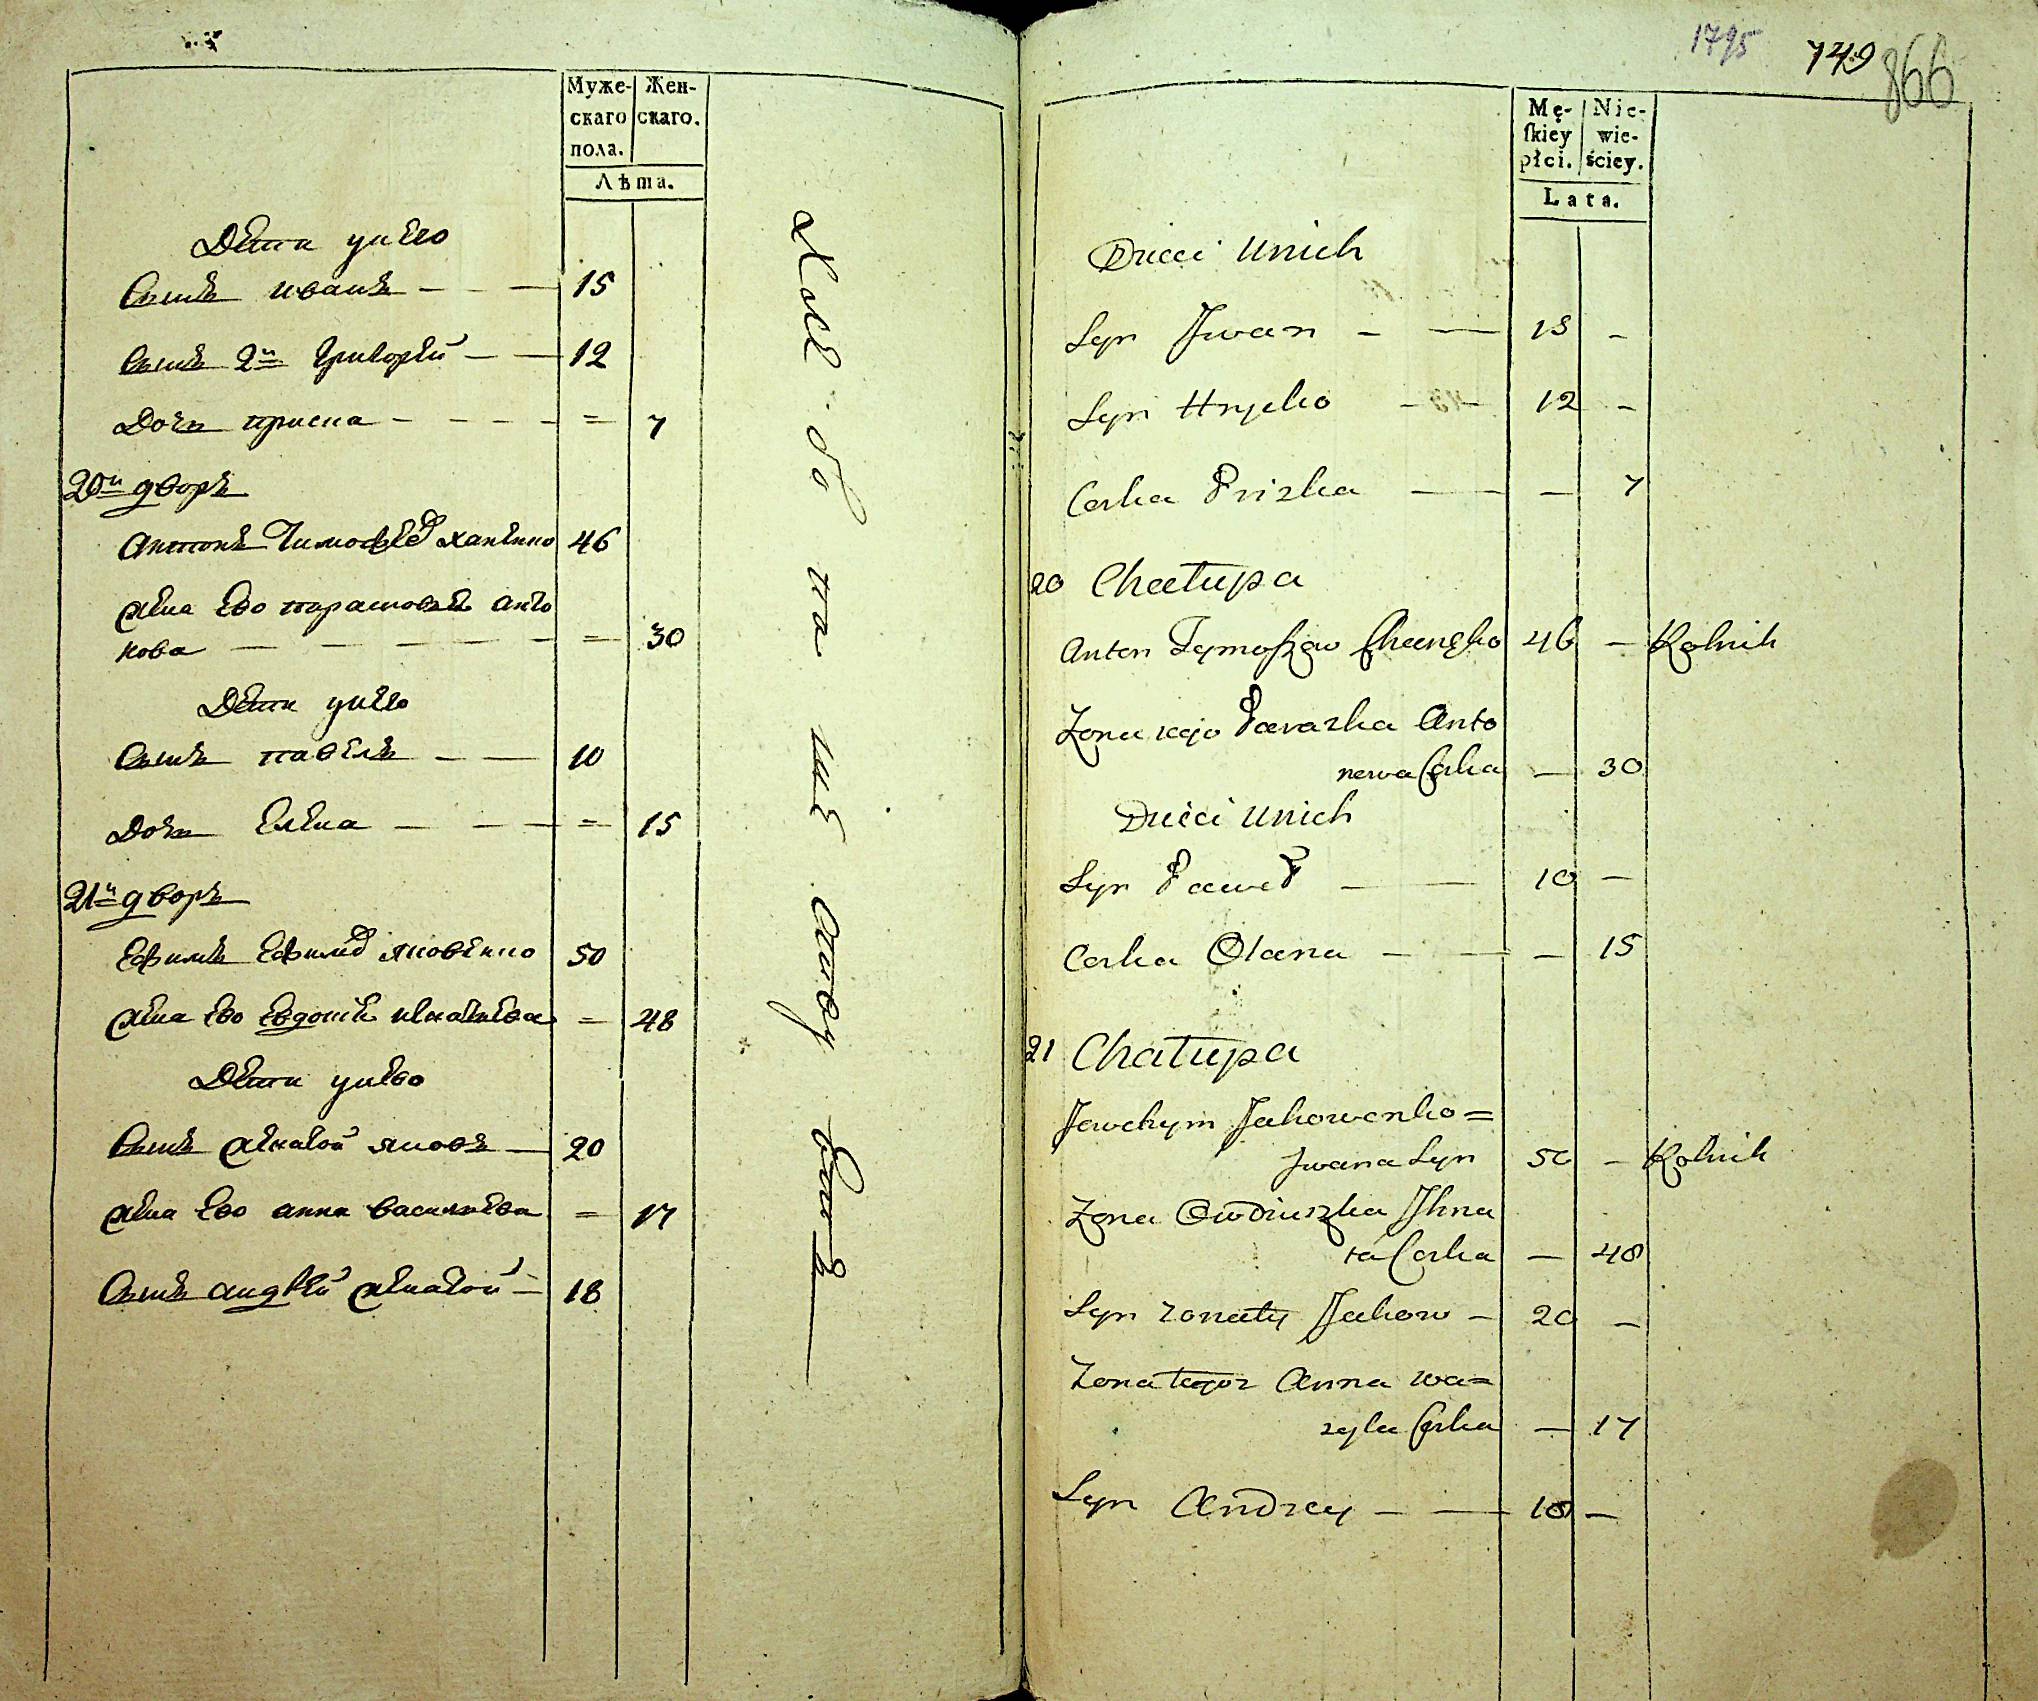 Муже-
скаго
пола.
Жен-
скаго.
Лѣта.
Дети унего
Сынъ иванъ — — — 15
Сынъ 2й Григорѣй — — 12
Дочь приска — — — — = 7
20й дворъ
Антонъ Тимофѣев ханенко 46
Жена Ево парасковѣя анто
нова — — — — — = 30
Дети унего
Сынъ павелъ — — 10
Дочь Елена — — — = 15
21й дворъ
Ефимъ Ефимов яковенко 50
Жена Ево Евдокия игнатьева = 48
Дети унево
Сынъ женатой яковъ — 20
Жена Ево анна васильева = 17
Сынъ андрей женатой — 18
1795
749
866
Mę-
skiey
płci.
Nie-
wie-
ściey.
Lata.
Dzieci Unich
Syn Jwan — — 15 —
Syn Hryćko — — 12 —
Corka Priska — — — 7
20 Chałupa
Anton Tymoszow Chanęko 46 — Rolnik
Zona iego Paraska Anto
nowa Corka — 30
Dzieci Unich
Syn Paweł — — 10 —
Corka Olana — — — 15
21 Chałupa
Jewchym Jakowenko =
Jwana Syn 50 — Rolnik
Zona Owdiuszka Jhna
ta Corka — 48
Syn zonaty Jakow — 20 —
Zona tegoz Anna wa=
zyla Corka — 17
Syn Andrey — — 18 —